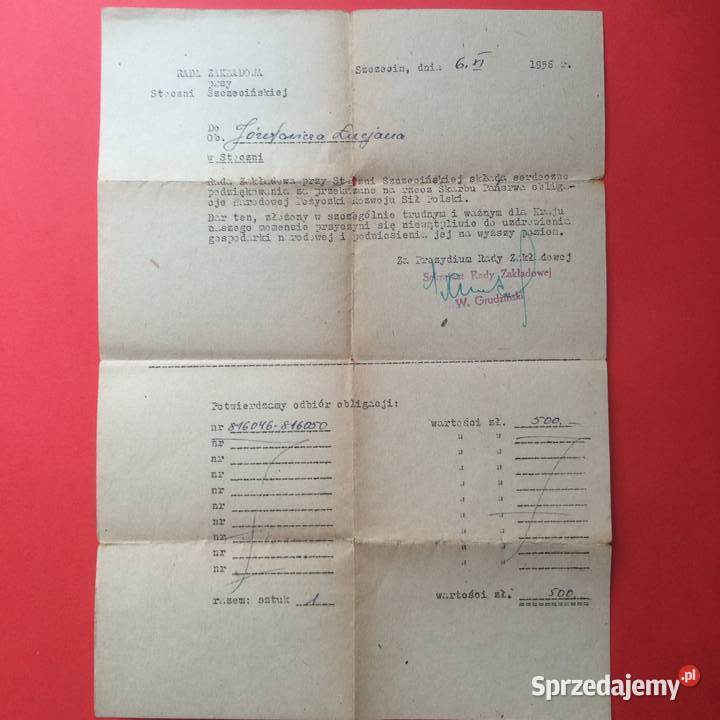 RADA ZAKŁADOWA
przy
Stoczni Szczecińskiej
Szczecin, dnia 6.XI 1956 r.
Do
Ob. Józefowicza Lucjana
w Stoczni
Rada Zakładowa przy Stoczni Szczecińskiej składa serdeczne
podziękowania za przekazane na rzecz Skarbu Państwa obliga-
cje Narodowej Pożyczki Rozwoju Sił Polski.
Dar ten, złożony w szczególnie trudnym i ważnym dla Kraju
naszego momencie przyczyni się niewątpliwie do uzdrowienia
gospodarki narodowej i podniesienia jej na wyższy poziom.
Za Prezydium Rady Zakładowej
Sekretarz Rady Zakładowej
W. Grudziński
Potwierdzamy odbiór obligacji:
nr 816046-816050 wartości zł. 500.-
nr " "
nr " "
nr " "
nr " "
nr " "
nr " "
nr " "
nr " "
nr " "
razem: sztuk 1 wartości zł. 500.
Sprzedajemy.pl